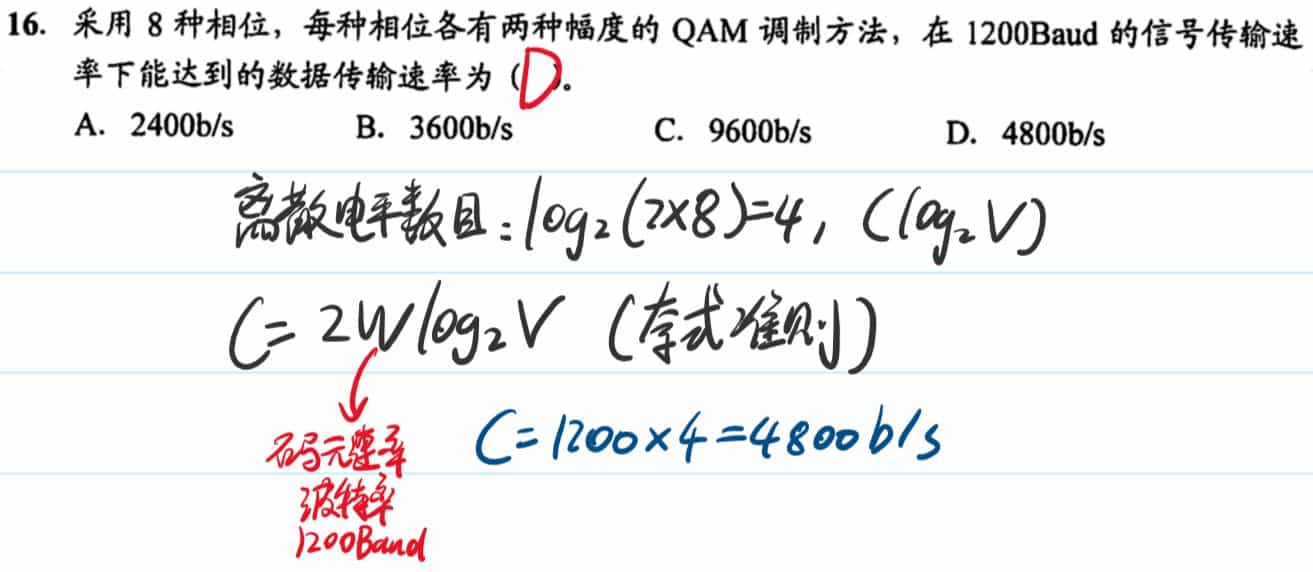 16. 采用 8 种相位，每种相位各有两种幅度的 QAM 调制方法，在 1200Baud 的信号传输速
率下能达到的数据传输速率为（D）。
A. 2400b/s B. 3600b/s C. 9600b/s D. 4800b/s
离散电平数目：log₂(2×8)=4，(log₂V)
C=2Wlog₂V（奈式准则）
码元速率
波特率
1200Baud
C=1200×4=4800b/s